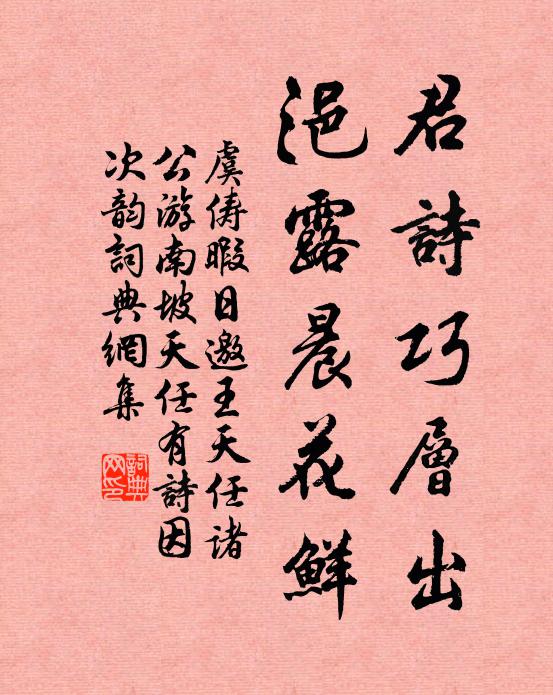 君詩巧層出
浥露晨花鮮
虞儔暇日邀王天任諸
公游南坡天任有詩因
次韵詞典網集
詞典
网印